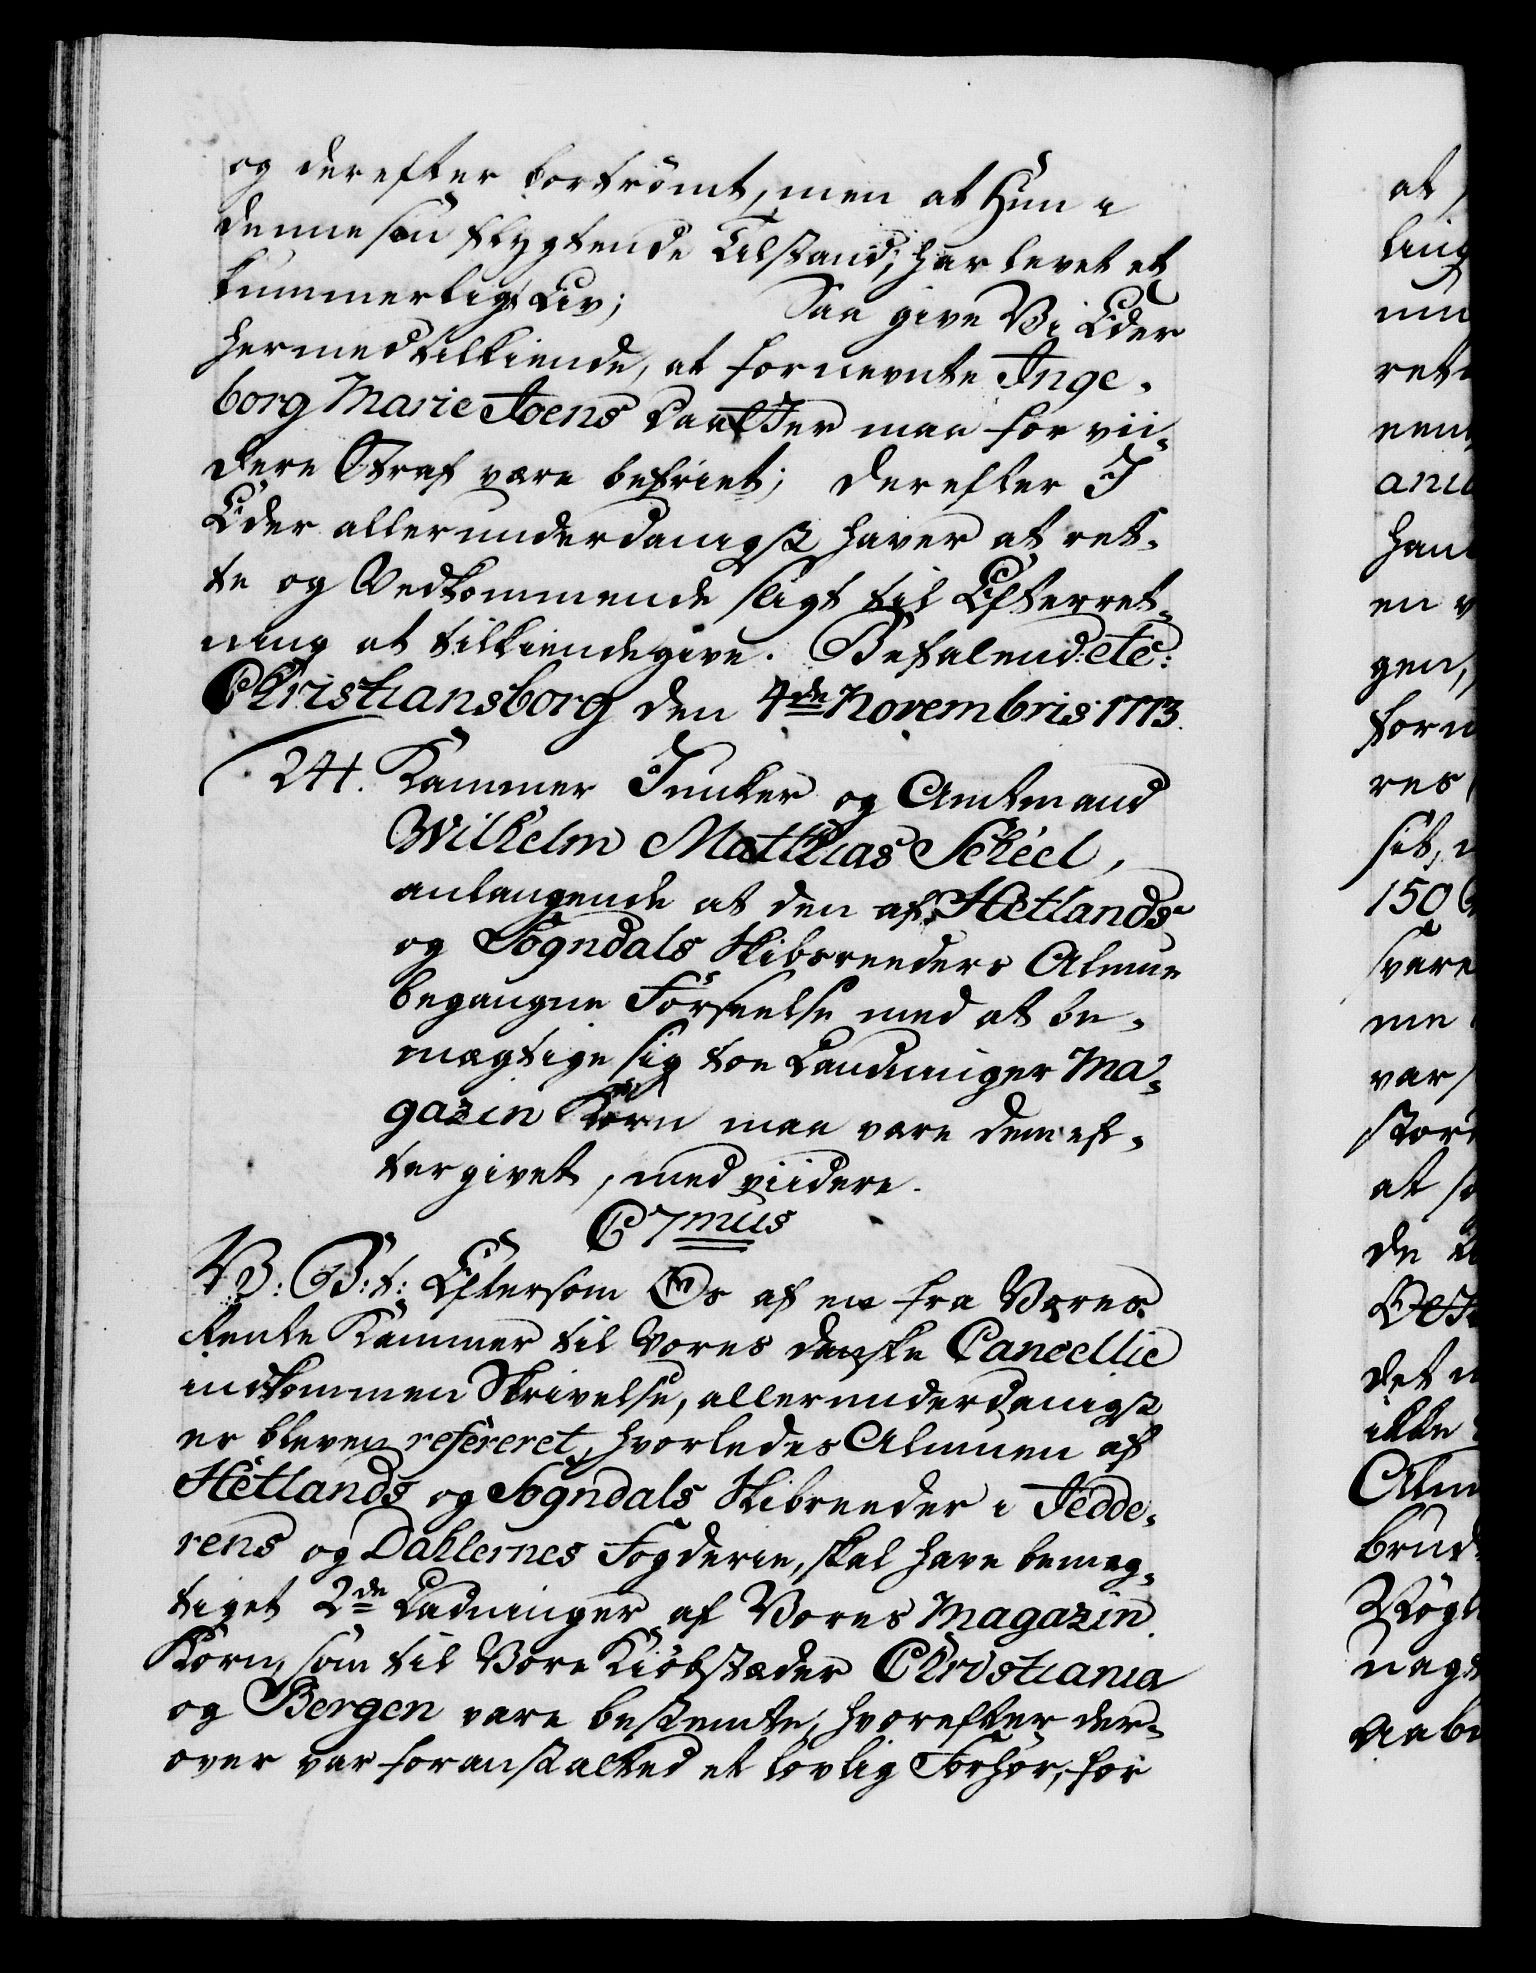 og derefter bortrömt, men at Hun i
denne sin flygtende Tilstand, har levet et
kummerligt Liv; Saa give Vi Eder
hermed tilkiende, at fornevnte Inge-
borg Marie Joens Daatter maa for vii-
dere Straf være befriet; derefter I
Eder allerunderdanigst haver at ret-
te og Vedkommende sligt til Efterret-
ning at tilkiendegive. Befalend: etc:
Christiansborg den 4de Novembris 1773.
241. Kammer Junker og Amtmand
Wilhelm Matthias Scheel,
anlangende at den af Hetlands
og Sogndals Skibsreeders Almue
begangne Forseelse med at be-
mægtige sig toe Ladninger Ma-
gazin Korn maa være dem ef-
tergivet, med viidere.
C 7mus
V: G: t: Eftersom Os af en fra Vores
Rente Kammer til Vores danske Cancellie
indkommen Skrivelse, allerunderdanigst
er bleven refereret, hvorledes Almuen af
Hetlands og Sogndals Skibreeder i Jedde-
rens og Dahlernes Fogderie, skal have bemæg-
tiget 2de Ladninger af Vores Magazin
Korn, som til Vore Kiøbstæder Christiania
og Bergen vare bestemte, hvorefter der-
over var foranstalted et lovlig Forhør, for